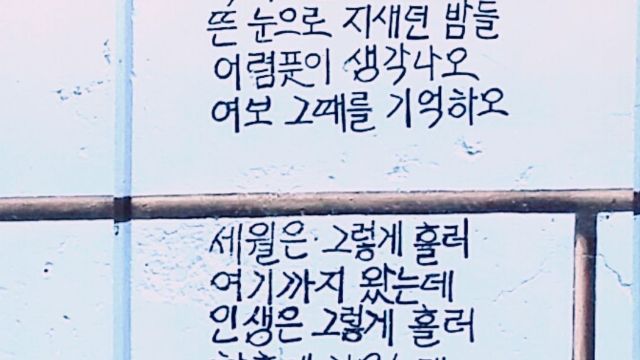 뜬 눈으로 지새던 밤들
어렴풋이 생각나오
여보 그때를 기억하오
세월은 그렇게 흘러
여기까지 왔는데
인생은 그렇게 흘러